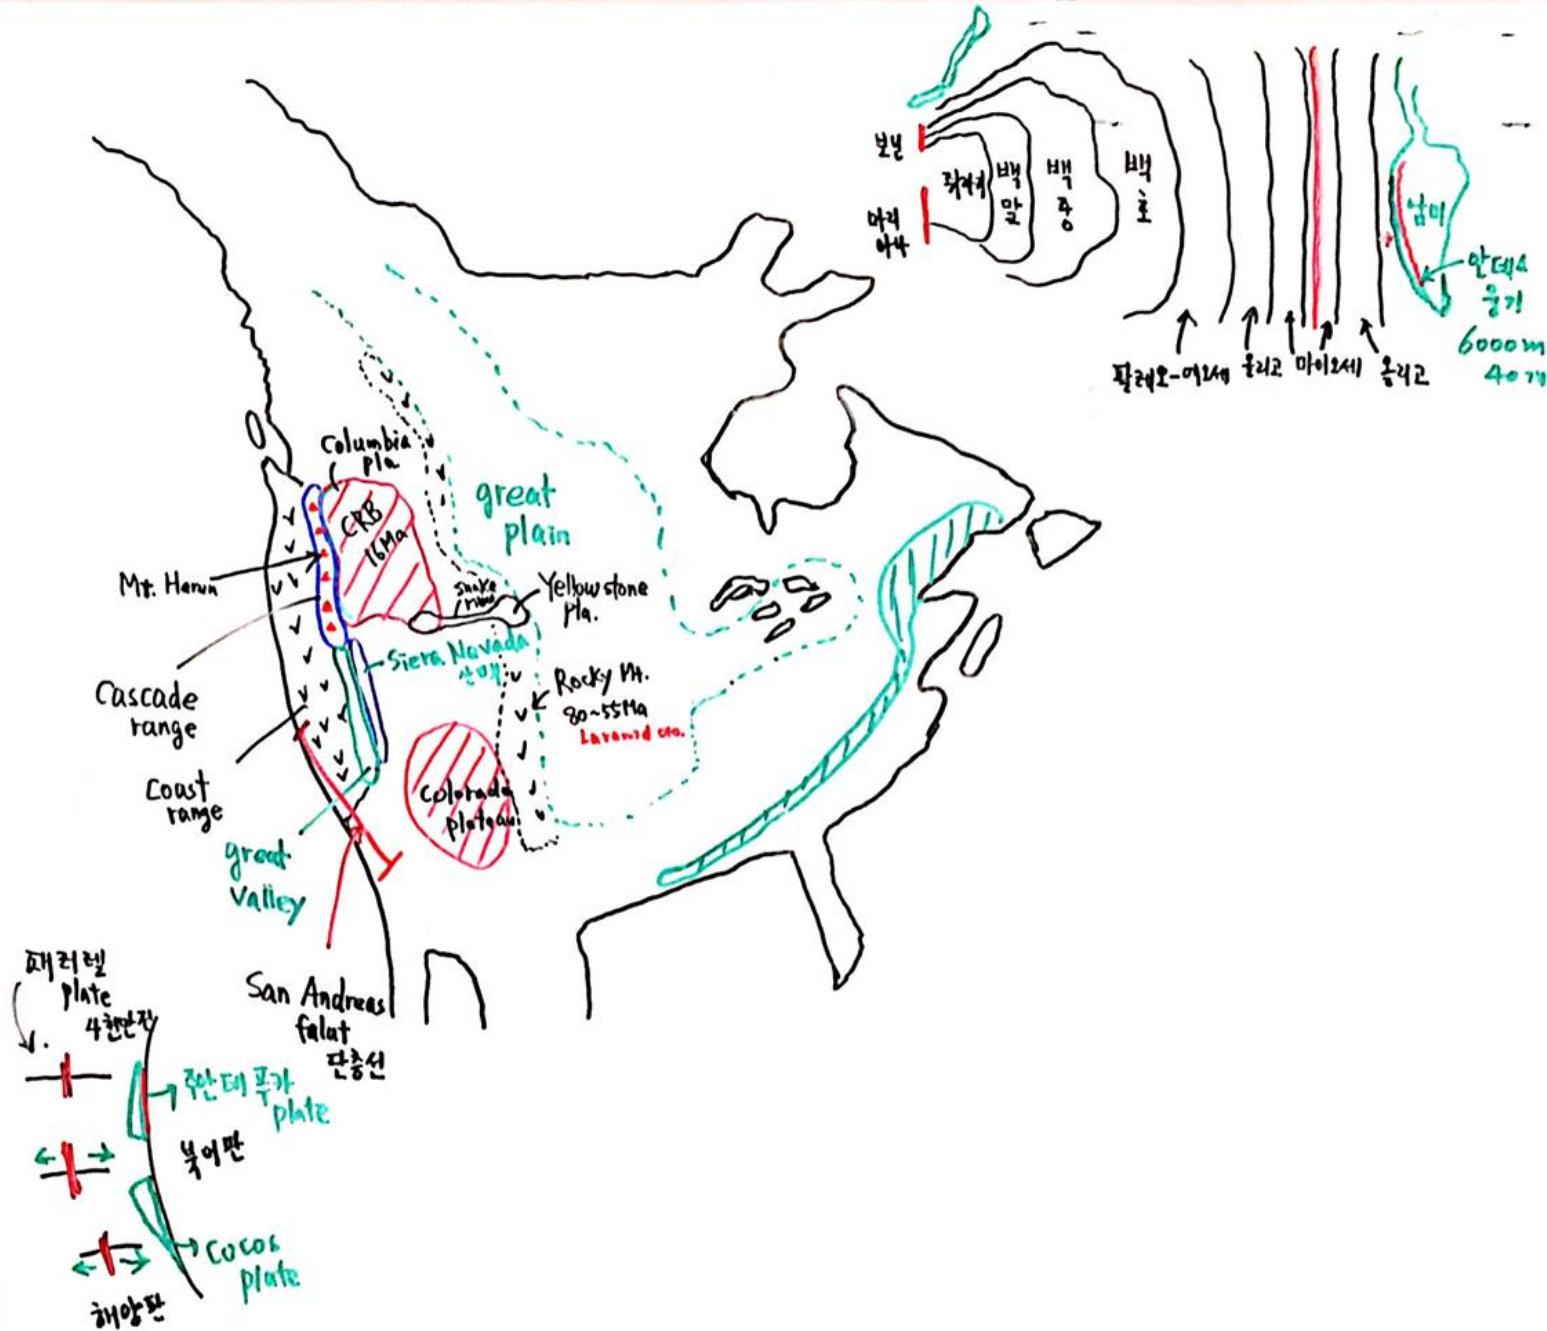 보닌
마리
아나
쥐라기
백
말
백
중
백
초
남미
안데스
융기
6000m
40개
팔레오-에오세
올리고
마이오세
올리고
Columbia
pla.
CRB
16Ma
great
plain
Mt. Heren
snake
river
Yellowstone
pla.
Siera Nevada
산맥
Rocky Mt.
80~55Ma
Laramid oro.
Cascade
range
Coast
range
Colorado
plateau
great
valley
San Andreas
falut
단층선
패러렐
plate
4천만전
주안데푸카
plate
북미판
cocos
plate
해양판